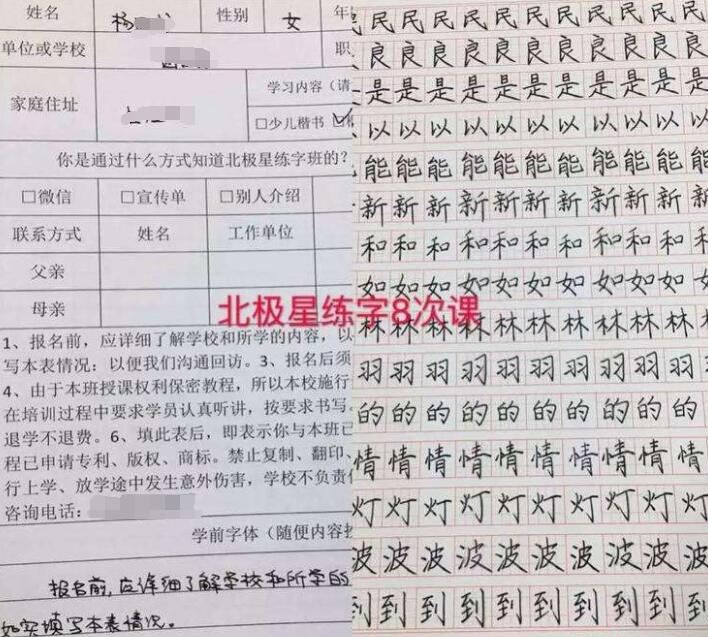 姓名 性别 女 年
单位或学校 职
家庭住址 学习内容（请
□少儿楷书
你是通过什么方式知道北极星练字班的？
□微信 □宣传单 □别人介绍
联系方式 姓名 工作单位
父亲
母亲
北极星练字8次课
1、报名前，应详细了解学校和所学的内容，以
写本表情况：以便我们沟通回访。3、报名后须
4、由于本班授课权利保密教程，所以本校施行
在培训过程中要求学员认真听讲，按要求书写
退学不退费。6、填此表后，即表示你与本班已
程已申请专利、版权、商标。禁止复制、翻印、
行上学、放学途中发生意外伤害，学校不负责任
咨询电话：
学前字体（随便内容抄
报名前，应详细了解学校和所学的
如实填写本表情况。
民民民民民民民民民民民
良良良良良良良良良良良
是是是是是是是是是是是
以以以以以以以以以以
能能能能能能能能能能能
新新新新新新新新新新新
和和和和和和和和和和和
如如如如如如如如如如如
林林林林林林林林林林林
羽羽羽羽羽羽羽羽羽羽羽
的的的的的的的的的的
情情情情情情情情情情情
灯灯灯灯灯灯灯灯灯灯
波波波波波波波波波波
到到到到到到到到到